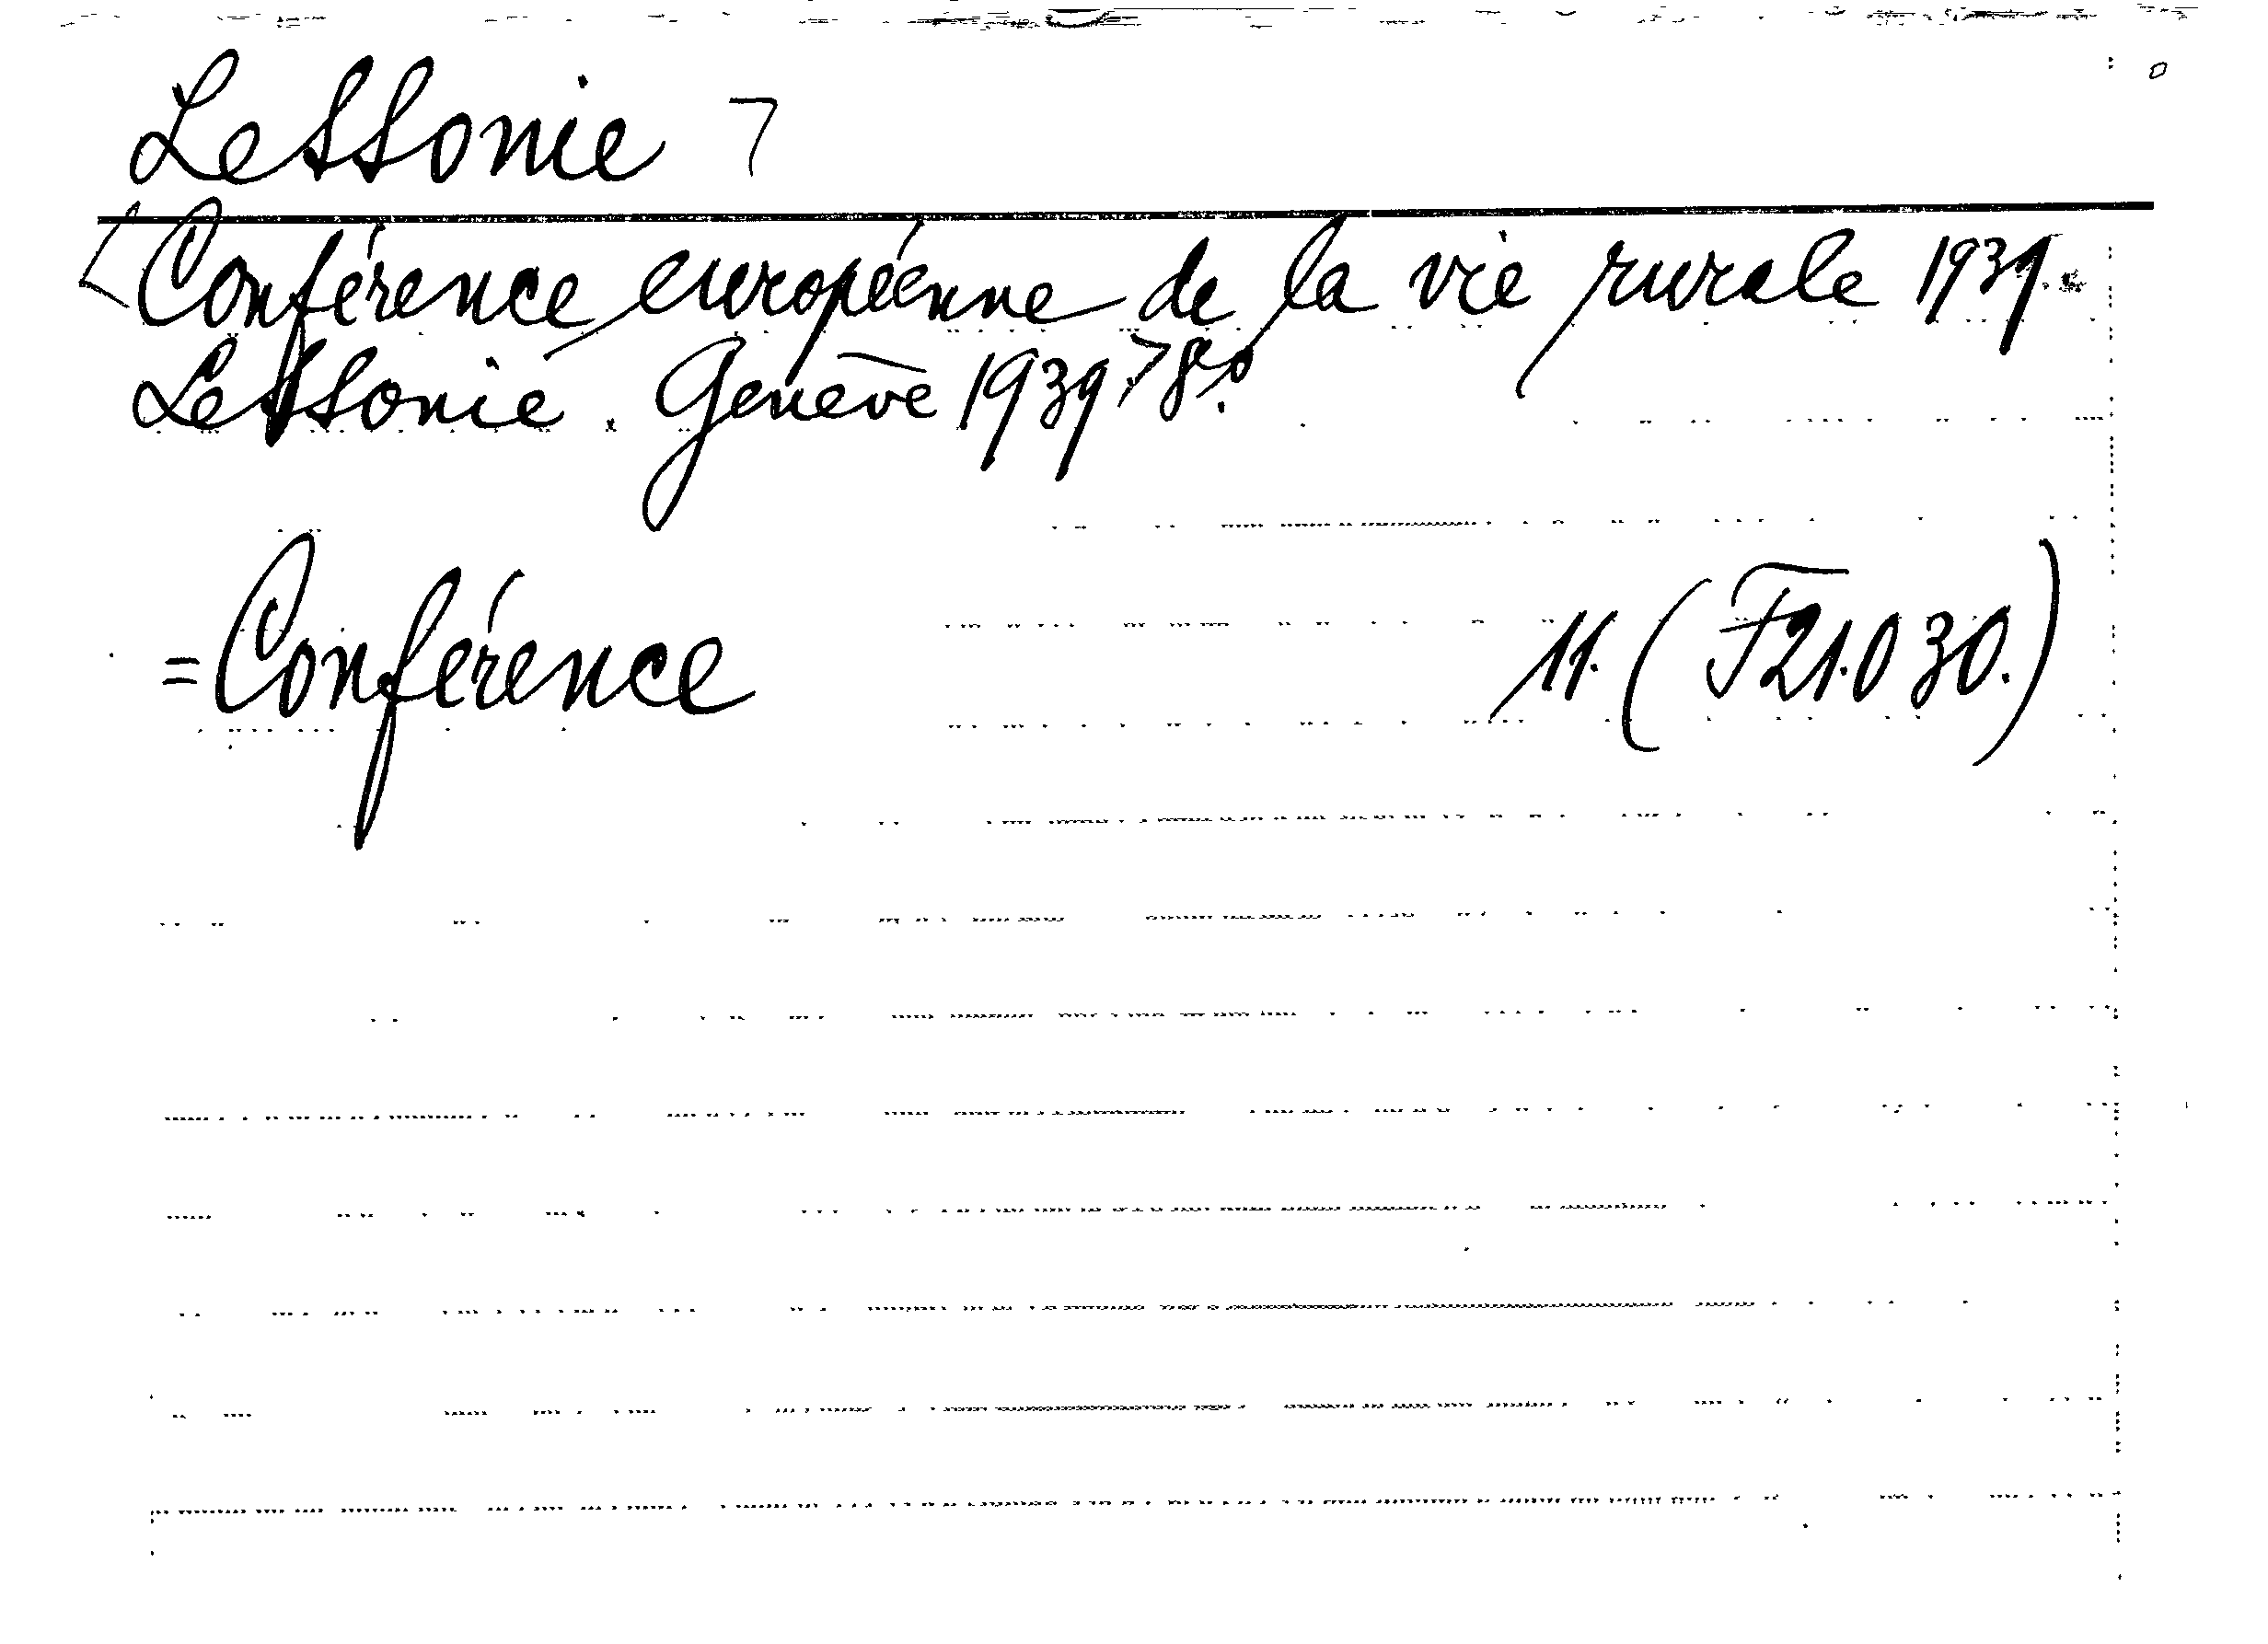 Lessonie 7
[Conférence européenne de la vie rurale 1939.
Lessonie. Genève 1939 > 8o.
= Conférence 11. (F21.030.)